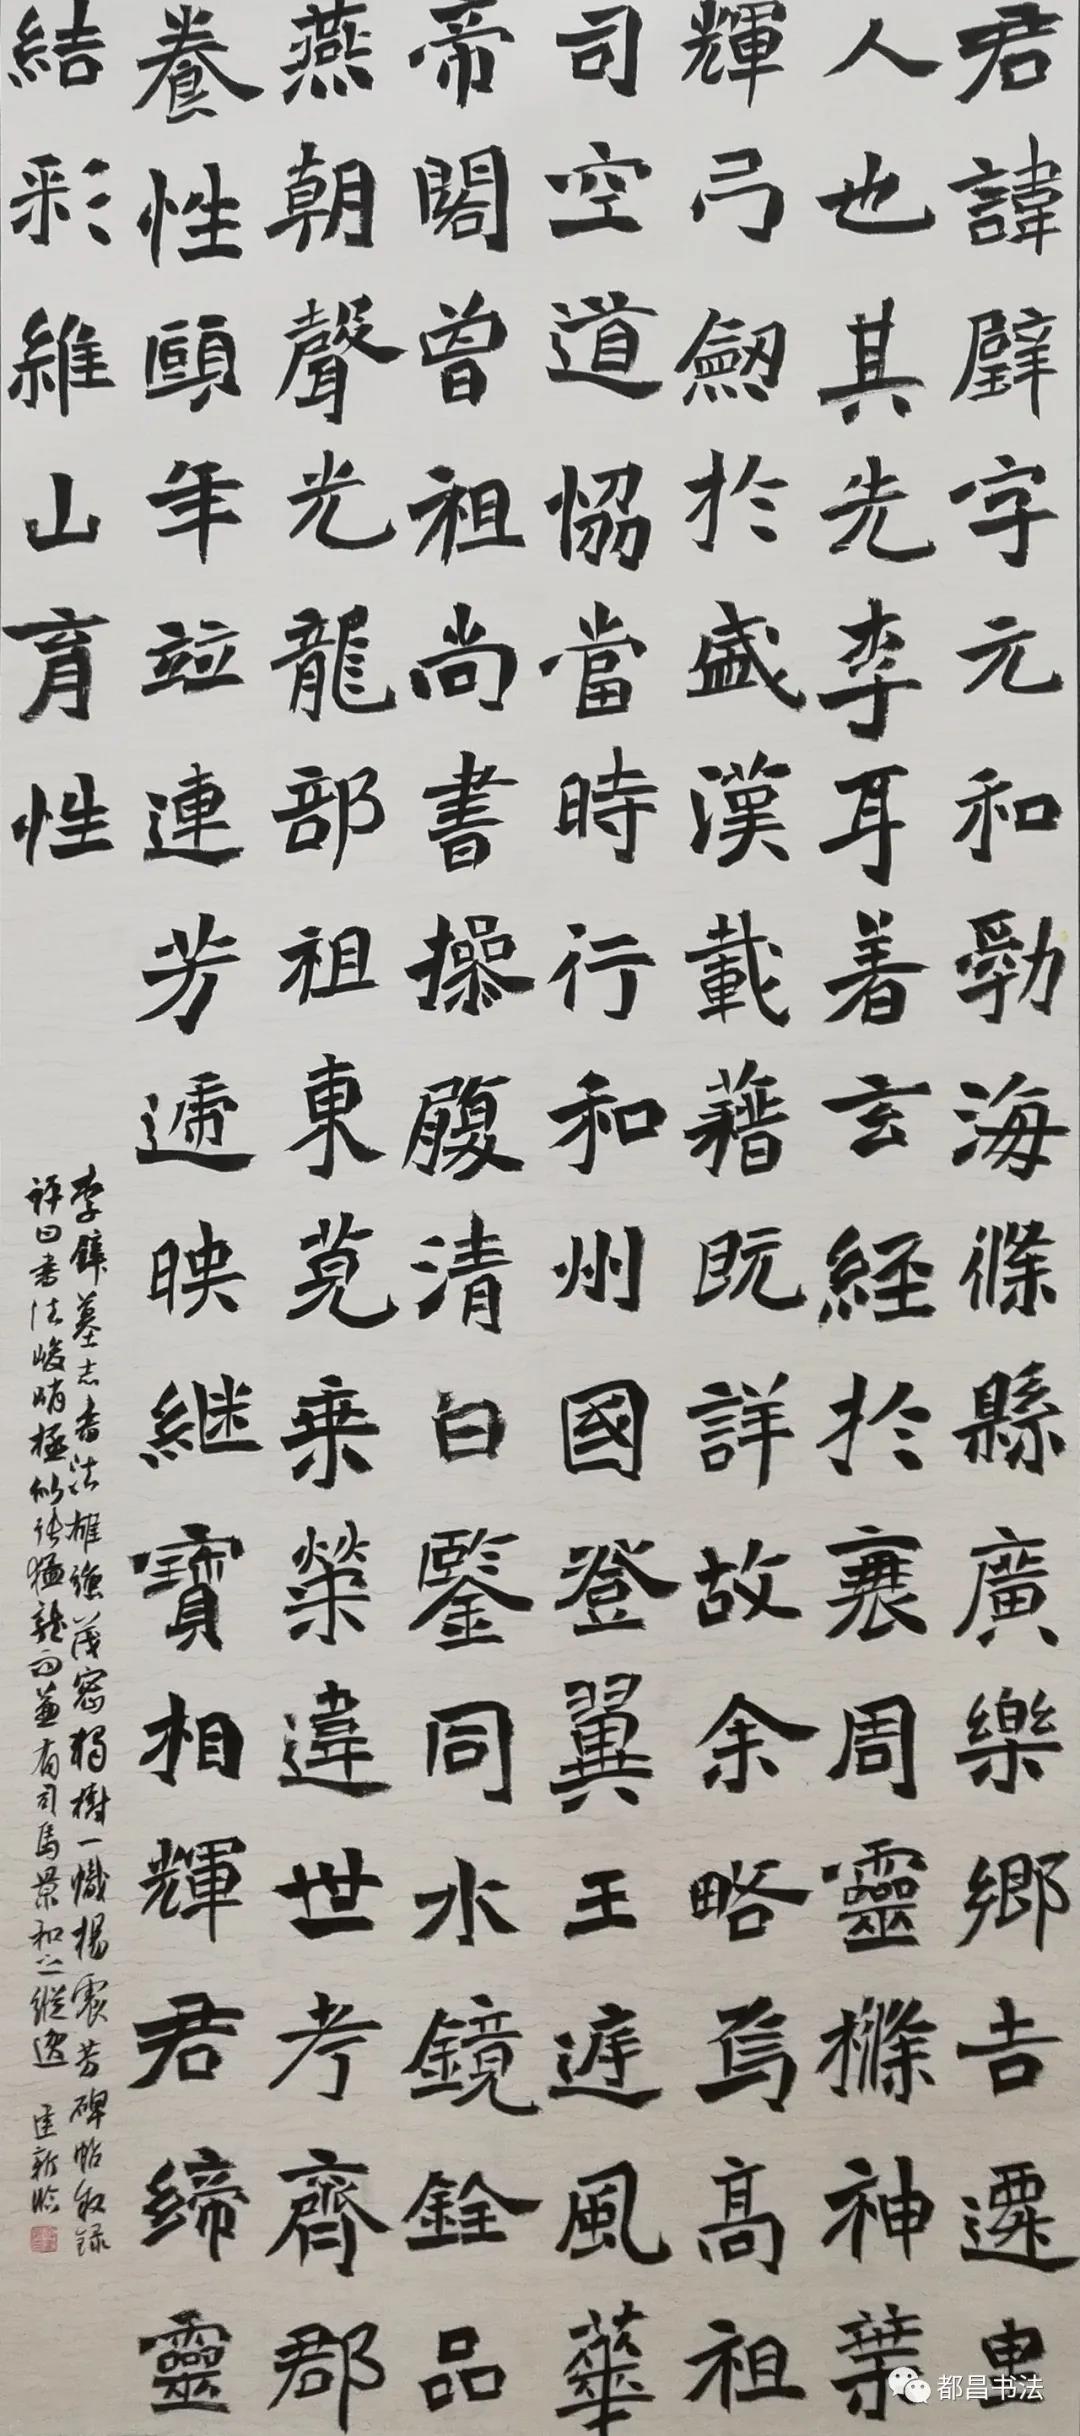 君諱璧字元和勃海條縣廣樂鄉吉遷里
人也其先李耳著玄經於衰周靈櫾神葉
輝弓劒於盛漢載藉既詳故余略焉高祖
司空道恊當時行和州國登翼王遊風華
帝閣曾祖尚書操履清白鑒同水鏡銓品
燕朝聲光龍部祖東莞乘榮違世考齊郡
養性頤年竝連芳遞映繼寶相輝君締靈
結彩維山育性
李璧墓志書法雄強茂密獨樹一幟楊震方碑帖敘錄
評曰書法峻峭極似張猛龍而兼有司馬景和之縱逸
都昌书法